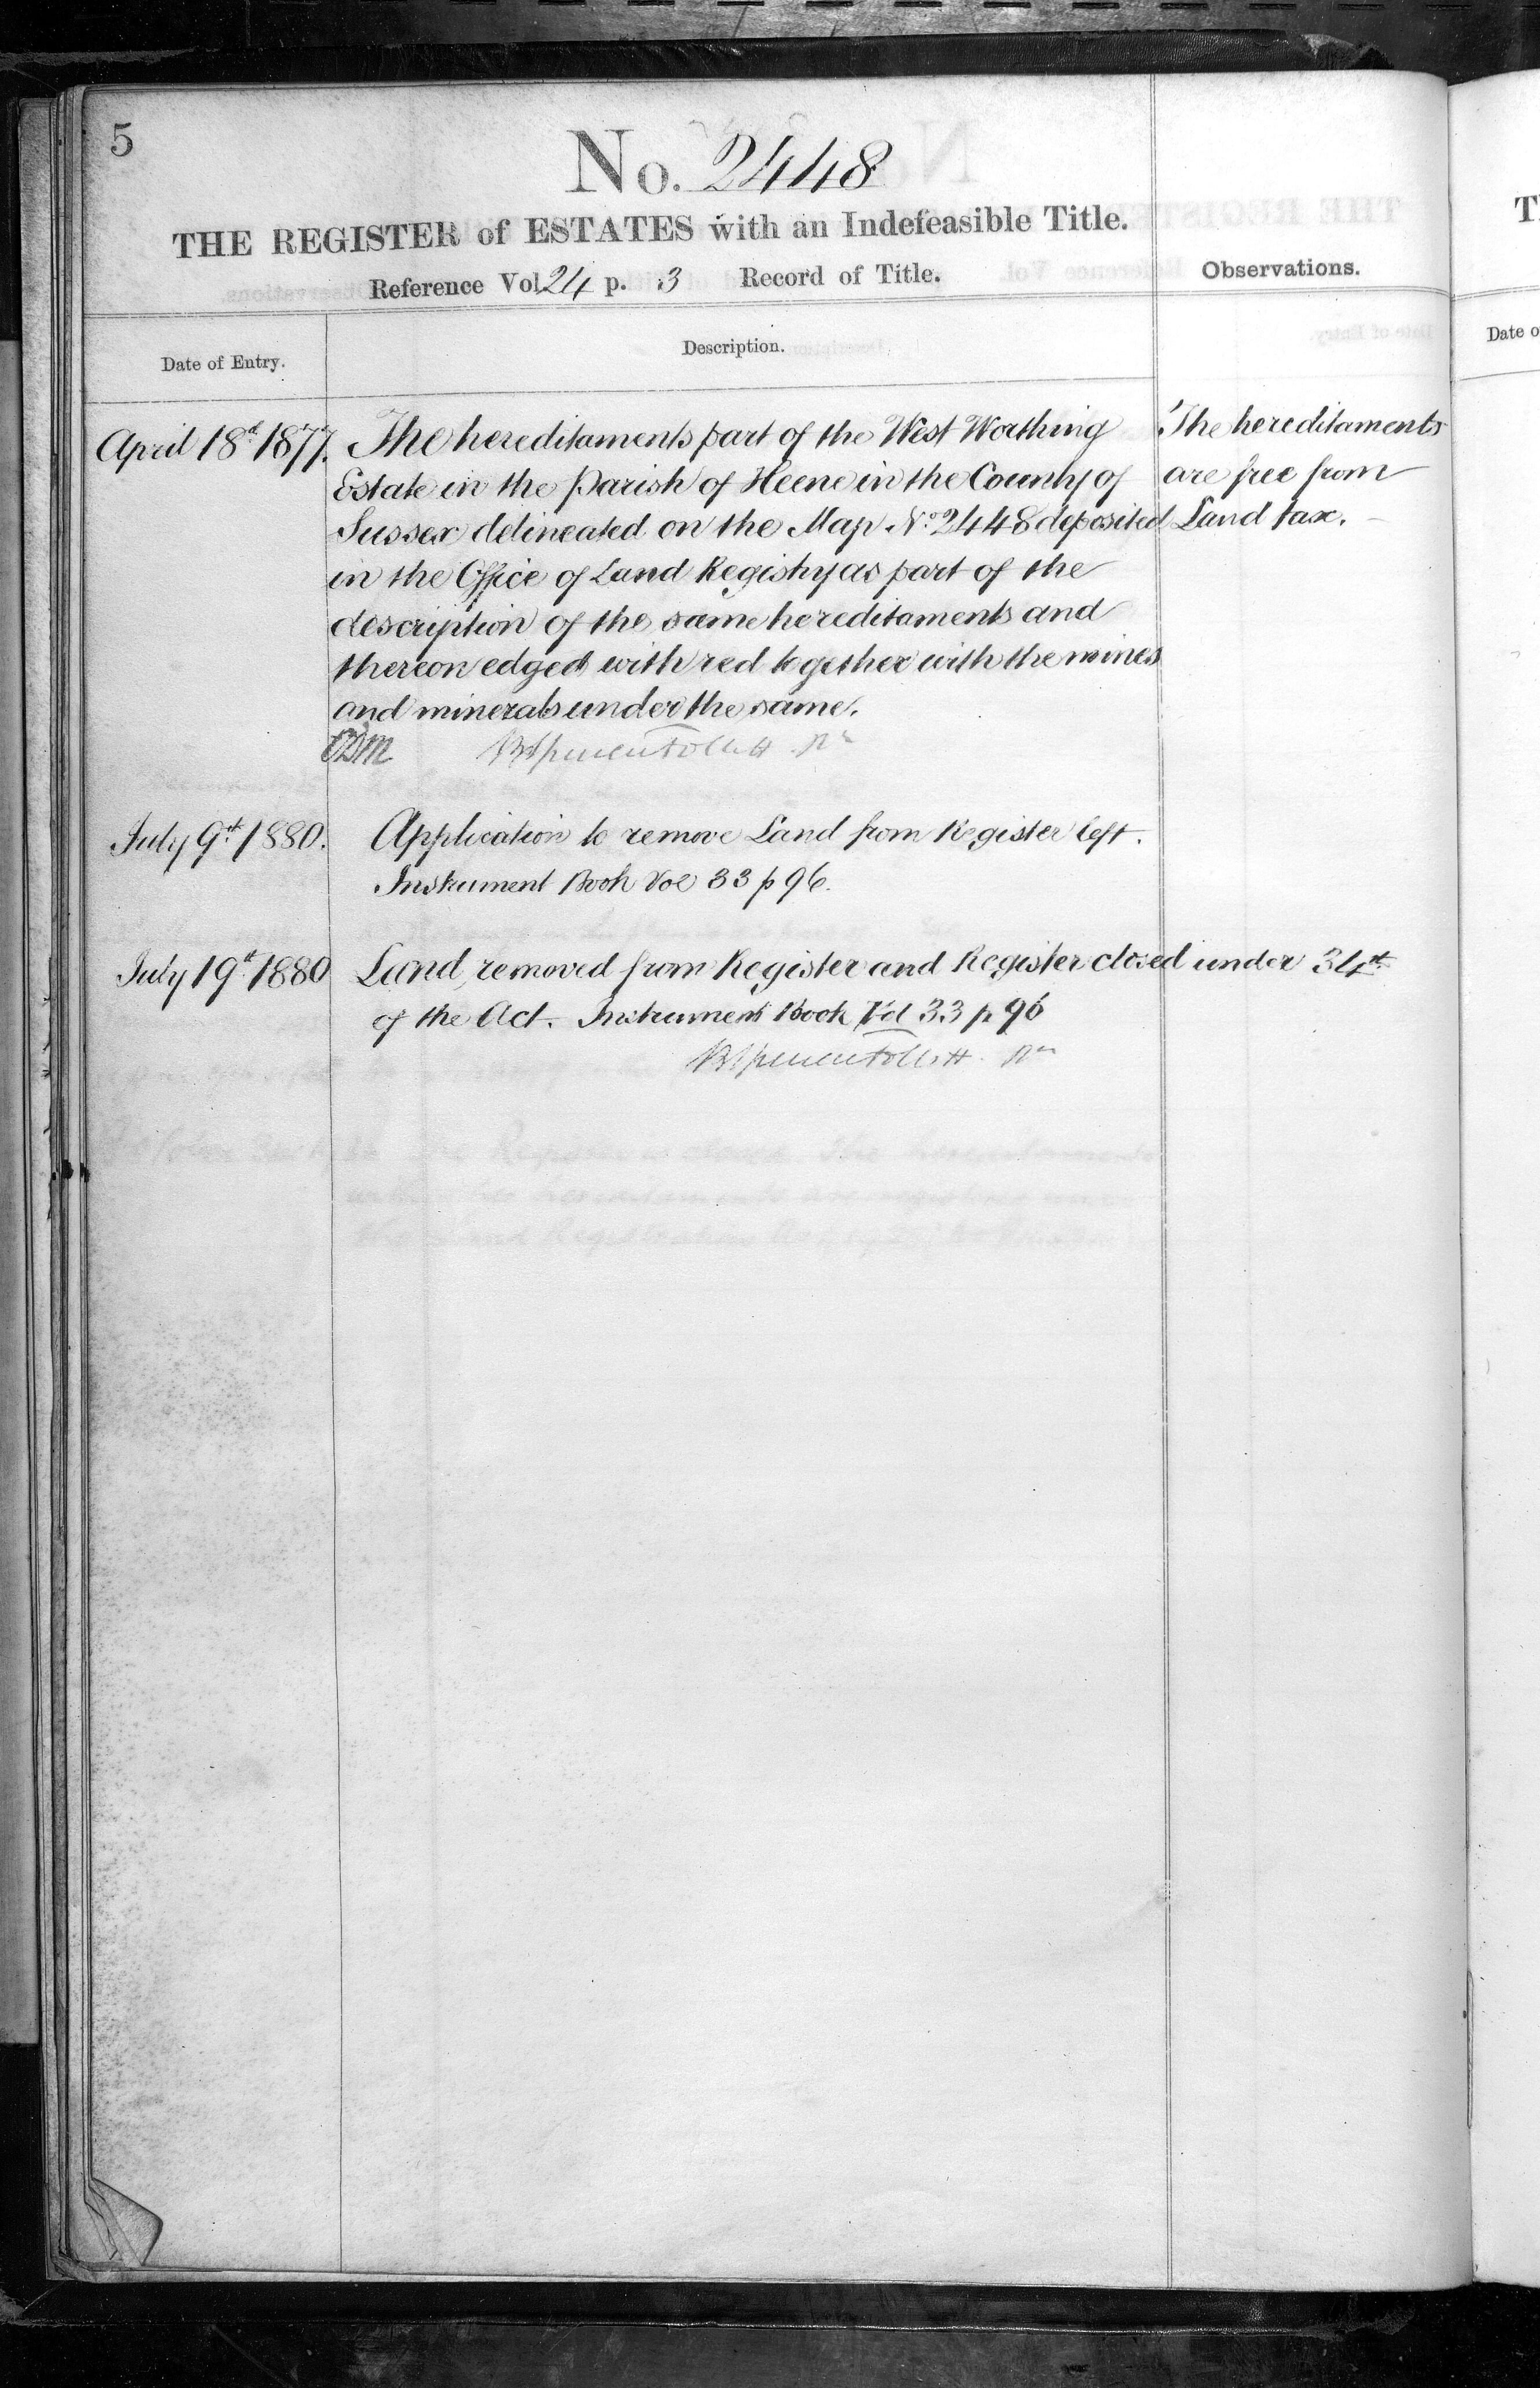 5
No. 2448
THE REGISTER of ESTATES with an Indefeasible Title.
Reference Vol 24 p. 3 Record of Title.
Observations.
Date of Entry.
Description.
April 18th 1877. The hereditaments part of the West Worthing
Estate in the Parish of Heene in the County of
Sussex delineated on the Map No. 2448 deposited
in the Office of Land Registry as part of the
description of the same hereditaments and
thereon edged with red together with the mines
and minerals under the same.
The hereditaments
are free from
Land tax.
July 9th 1880. Application to remove Land from Register left.
Instrument Book Vol 33 p 96.
July 19th 1880 Land removed from Register and Register closed under 34 st.
of the Act. Instrument Book Vol 33 p 96
T
Date o